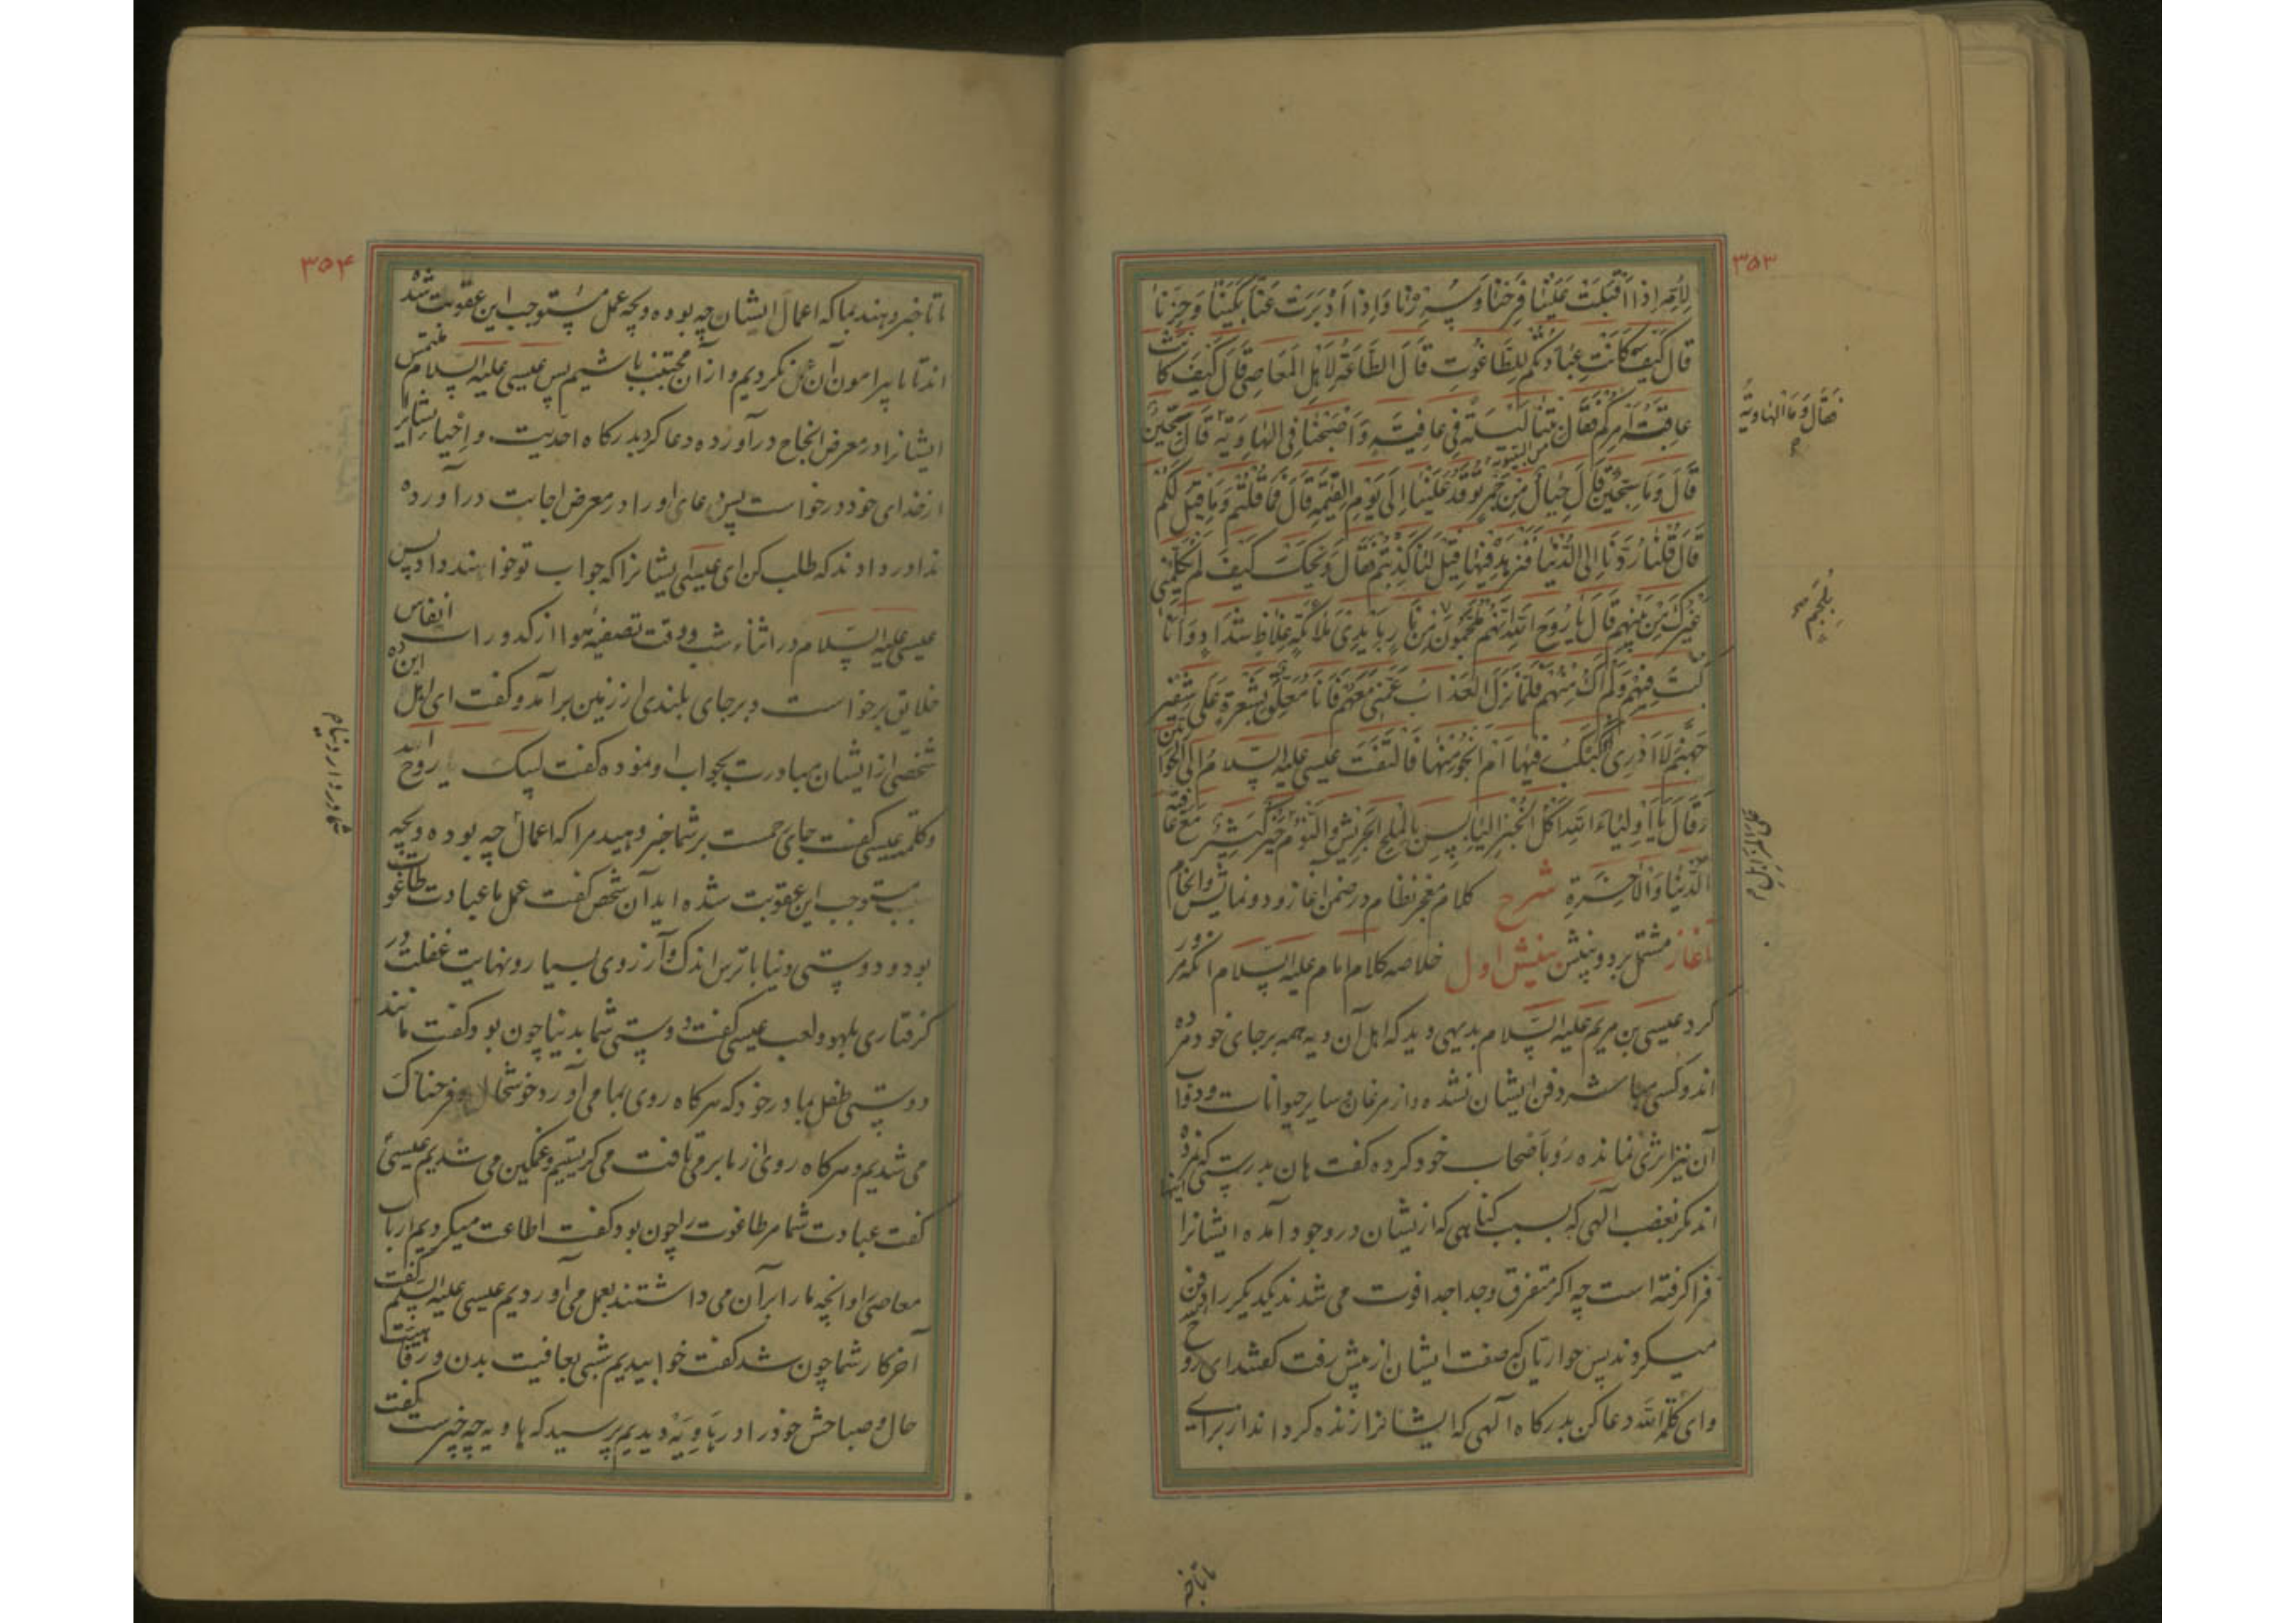 ۳۵۳
لِاُمِّهِ اِذَا اَقْبَلَتْ عَلَيْنَا فَرِحْنَا وَسُرِرْنَا وَاِذَا اَدْبَرَتْ عَنَّا بَكَيْنَا وَحَزِنَّا
قَالَ كَيْفَ كَانَتْ عِبَادَتُكُمْ لِلطَّاغُوتِ قَالَ الطَّاعَةُ لِاَهْلِ الْمَعَاصِي قَالَ كَيْفَ كَانَتْ
عَاقِبَةُ اَمْرِكُمْ فَقَالَ بِتْنَا لَيْلَةً فِي عَافِيَةٍ وَاَصْبَحْنَا فِي الْهَاوِيَةِ قَالَ سِجِّينٌ
فَقَالَ وَمَا الْهَاوِيَةُ
قَالَ وَمَا سِجِّينٌ قَالَ جِبَالٌ مِنْ جَمْرٍ تُوقَدُ عَلَيْنَا اِلَى يَوْمِ الْقِيٰمَةِ قَالَ فَمَا قُلْتُمْ وَمَا قِيلَ لَكُمْ
قَالَ قُلْنَا رُدَّنَا اِلَى الدُّنْيَا فَنَزْهَدُ فِيهَا قِيلَ لَنَا كَذَبْتُمْ فَقَالَ وَيْحَكَ كَيْفَ لَمْ يُكَلِّمْنِي
غَيْرُكَ مِنْ بَيْنِهِمْ قَالَ يَا رُوحَ اللهِ اِنَّهُمْ مُلْجَمُونَ مِنْ نَارٍ بِاَيْدِي مَلَائِكَةٍ غِلَاظٍ شِدَادٍ وَاَنَا
كُنْتُ فِيهِمْ وَلَمْ اَكُ مِنْهُمْ فَلَمَّا نَزَلَ الْعَذَابُ عَمَّنِي مَعَهُمْ فَاَنَا مُعَلَّقٌ بِشَعْرَةٍ عَلَى شَفِيرِ
جَهَنَّمَ لَا اَدْرِي اُكَبْكَبُ فِيهَا اَمْ اَنْجُو مِنْهَا فَالْتَفَتَ عِيسَى عليه السلام اِلَى الْحَوَارِيِّينَ
وَقَالَ يَا اَوْلِيَاءَ اللهِ اَكْلُ الْخُبْزِ الْيَابِسِ بِالْمِلْحِ الْجَرِيشِ وَالنَّوْمُ خَيْرٌ كَثِيرٌ مَعَ عَافِيَةِ
الدُّنْيَا وَالْاٰخِرَةِ شرح کلام معجز نظام در ضمن آغاز و دو نمایش و انجام
آغاز مشتمل بر دو بینش بینش اول خلاصه کلام امام علیه السلام آنکه مرور
کرد عیسی بن مریم علیه السلام بدیهی دید که اهل آن دیه همه بر جای خود مرده
اند و کسی مباشر دفن ایشان نشده و از مرغان و سایر حیوانات و دواب
آن نیز اثری نمانده رو باصحاب خود کرده گفت هان بدرستی که نمرده
اند مگر بغضب الهی که بسبب گناهی که ازیشان در وجود آمده ایشانرا
فرا گرفته است چه اگر متفرق و جدا جدا فوت می شدند یکدیگر را دفن
میکردند پس حواریان که صفت ایشان از پیش رفت گفتند ای روح
وای کلمة الله دعا کن بدرگاه الهی که ایشانرا زنده گرداند از برای
ما تا خبر
۳۵۴
ما تا خبر دهند بما که اعمال ایشان چه بوده و بچه عمل مستوجب این عقوبت شده
اند تا ما پیرامون آن عمل نکردیم و از آن مجتنب باشیم پس عیسی علیه السلام ملتمس
ایشانرا در معرض انجاح درآورده دعا کرد بدرگاه احدیت و احیاء ایشانرا
از خدای خود درخواست پس دعای او را در معرض اجابت درآورده
ندا در دادند که طلب کن ای عیسی ایشانرا که جواب تو خواهند داد پس
عیسی علیه السلام در اثناء شب و وقت تصفیه هوا از کدورات انفاس
خلایق برخواست و بر جای بلندی از زمین برآمد و گفت ای اهل این ده
شخصی از ایشان مبادرت بجواب او نموده گفت لبیک یا روح الله
وکلمته عیسی گفت جای رحمت بر شما خبر دهید مرا که اعمال چه بوده و بچه
سبب مستوجب این عقوبت شده اید آن شخص گفت عمل ما عبادت طاغوت
بود و دوستی دنیا با ترس اندک و آرزوی بسیار و نهایت غفلت در
گرفتاری بلهو و لعب عیسی گفت دوستی شما بدنیا چون بود گفت مانند
دوستی طفل بمادر خود که هرگاه روی بما می آورد خوشحال و فرحناک
می شدیم و هرگاه روی از ما برمی تافت می گریستیم و غمگین می شدیم عیسی
گفت عبادت شما مر طاغوت را چون بود گفت اطاعت میکردیم ارباب
معاصی را و آنچه ما را بر آن می داشتند بعمل می آوردیم عیسی علیه السلام گفت
آخر کار شما چون شد گفت خوابیدیم شبی بعافیت بدن و رفاهیت
حال و صباحش خود را در هاویه دیدیم پرسید که هاویه چه چیز است گفت